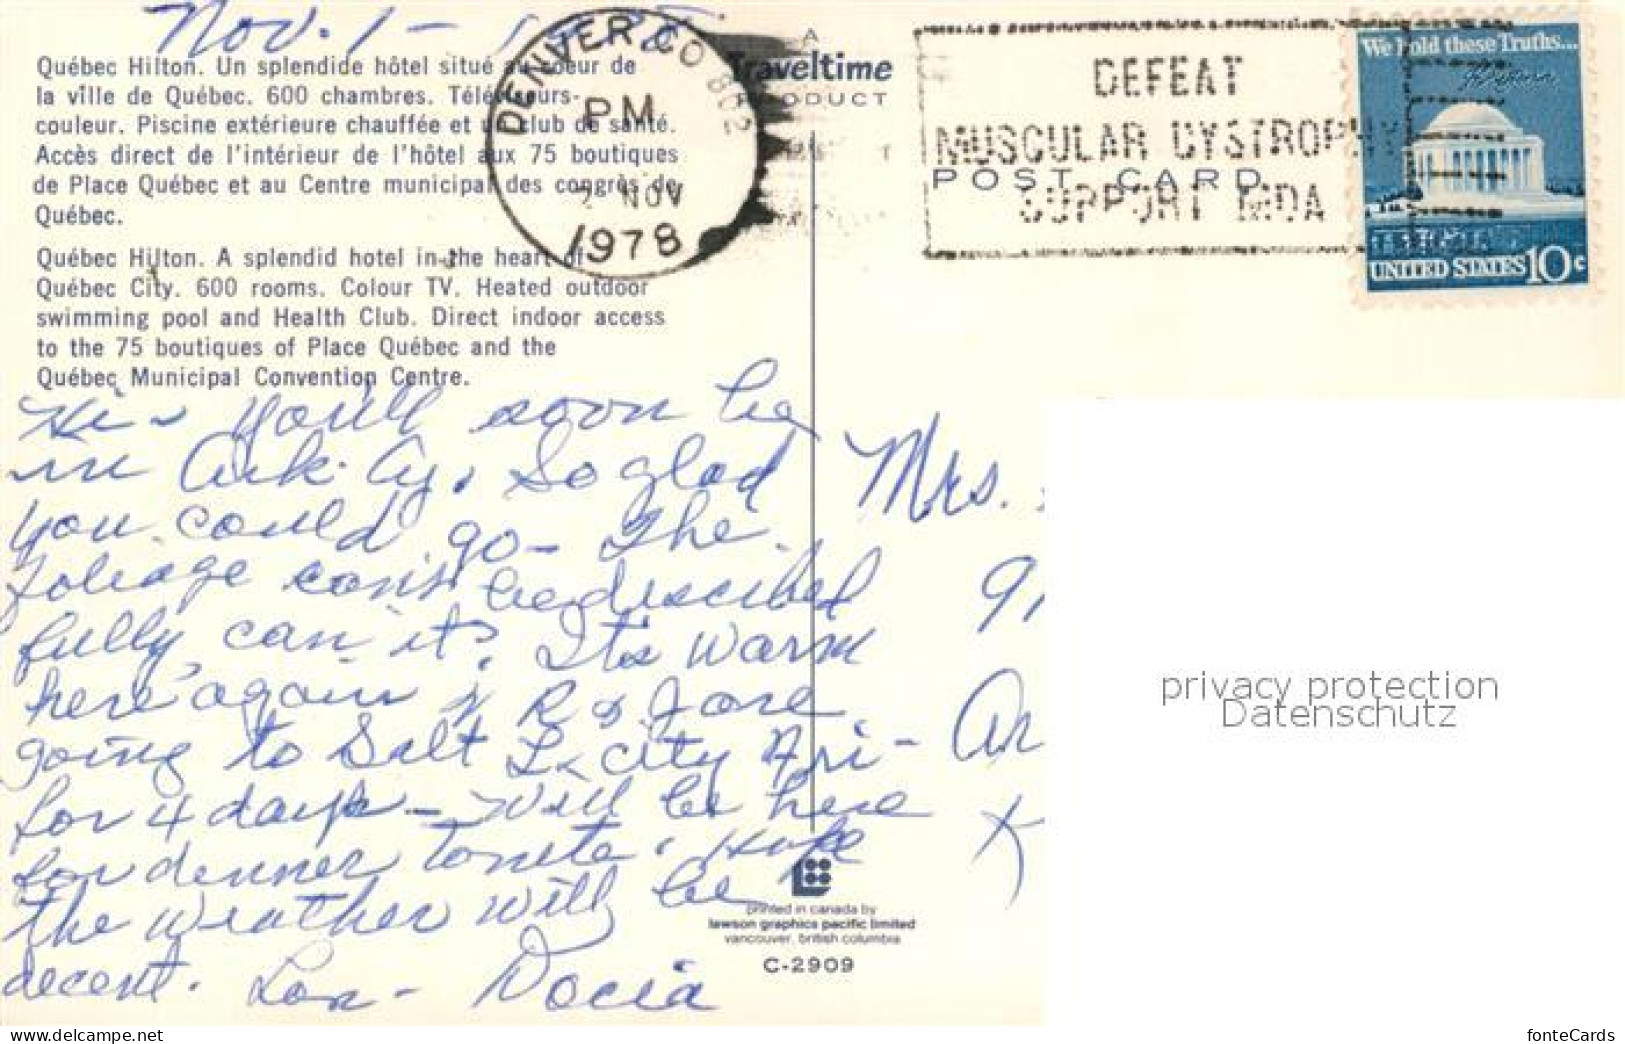 Nov. 1 -
Québec Hilton. Un splendide hôtel situé au coeur de
la ville de Québec. 600 chambres. Téléviseurs-
couleur. Piscine extérieure chauffée et un club de santé.
Accès direct de l'intérieur de l'hôtel aux 75 boutiques
de Place Québec et au Centre municipal des congrès de
Québec.
Québec Hilton. A splendid hotel in the heart of
Québec City. 600 rooms. Colour TV. Heated outdoor
swimming pool and Health Club. Direct indoor access
to the 75 boutiques of Place Québec and the
Québec Municipal Convention Centre.
DENVER, CO 802
PM
2 NOV
1978
A
Traveltime
PRODUCT
POST CARD
DEFEAT
MUSCULAR DYSTROPHY
SUPPORT MDA
We hold these Truths...
UNITED STATES 10c
Hi - You'll soon be
in Ark. Cy. So glad
you could go - The
foliage can't be described
fully, can it? It's warm
here again & R & Jane
going to Salt L. city Fri -
for 4 days - Will be here
for denner tonite. Hope
the weather will be
decent. Lov - Docia
Mrs.
91
Ar
printed in canada by
lawson graphics pacific limited
vancouver, british columbia
C-2909
privacy protection
Datenschutz
https://www.delcampe.net
fonteCards